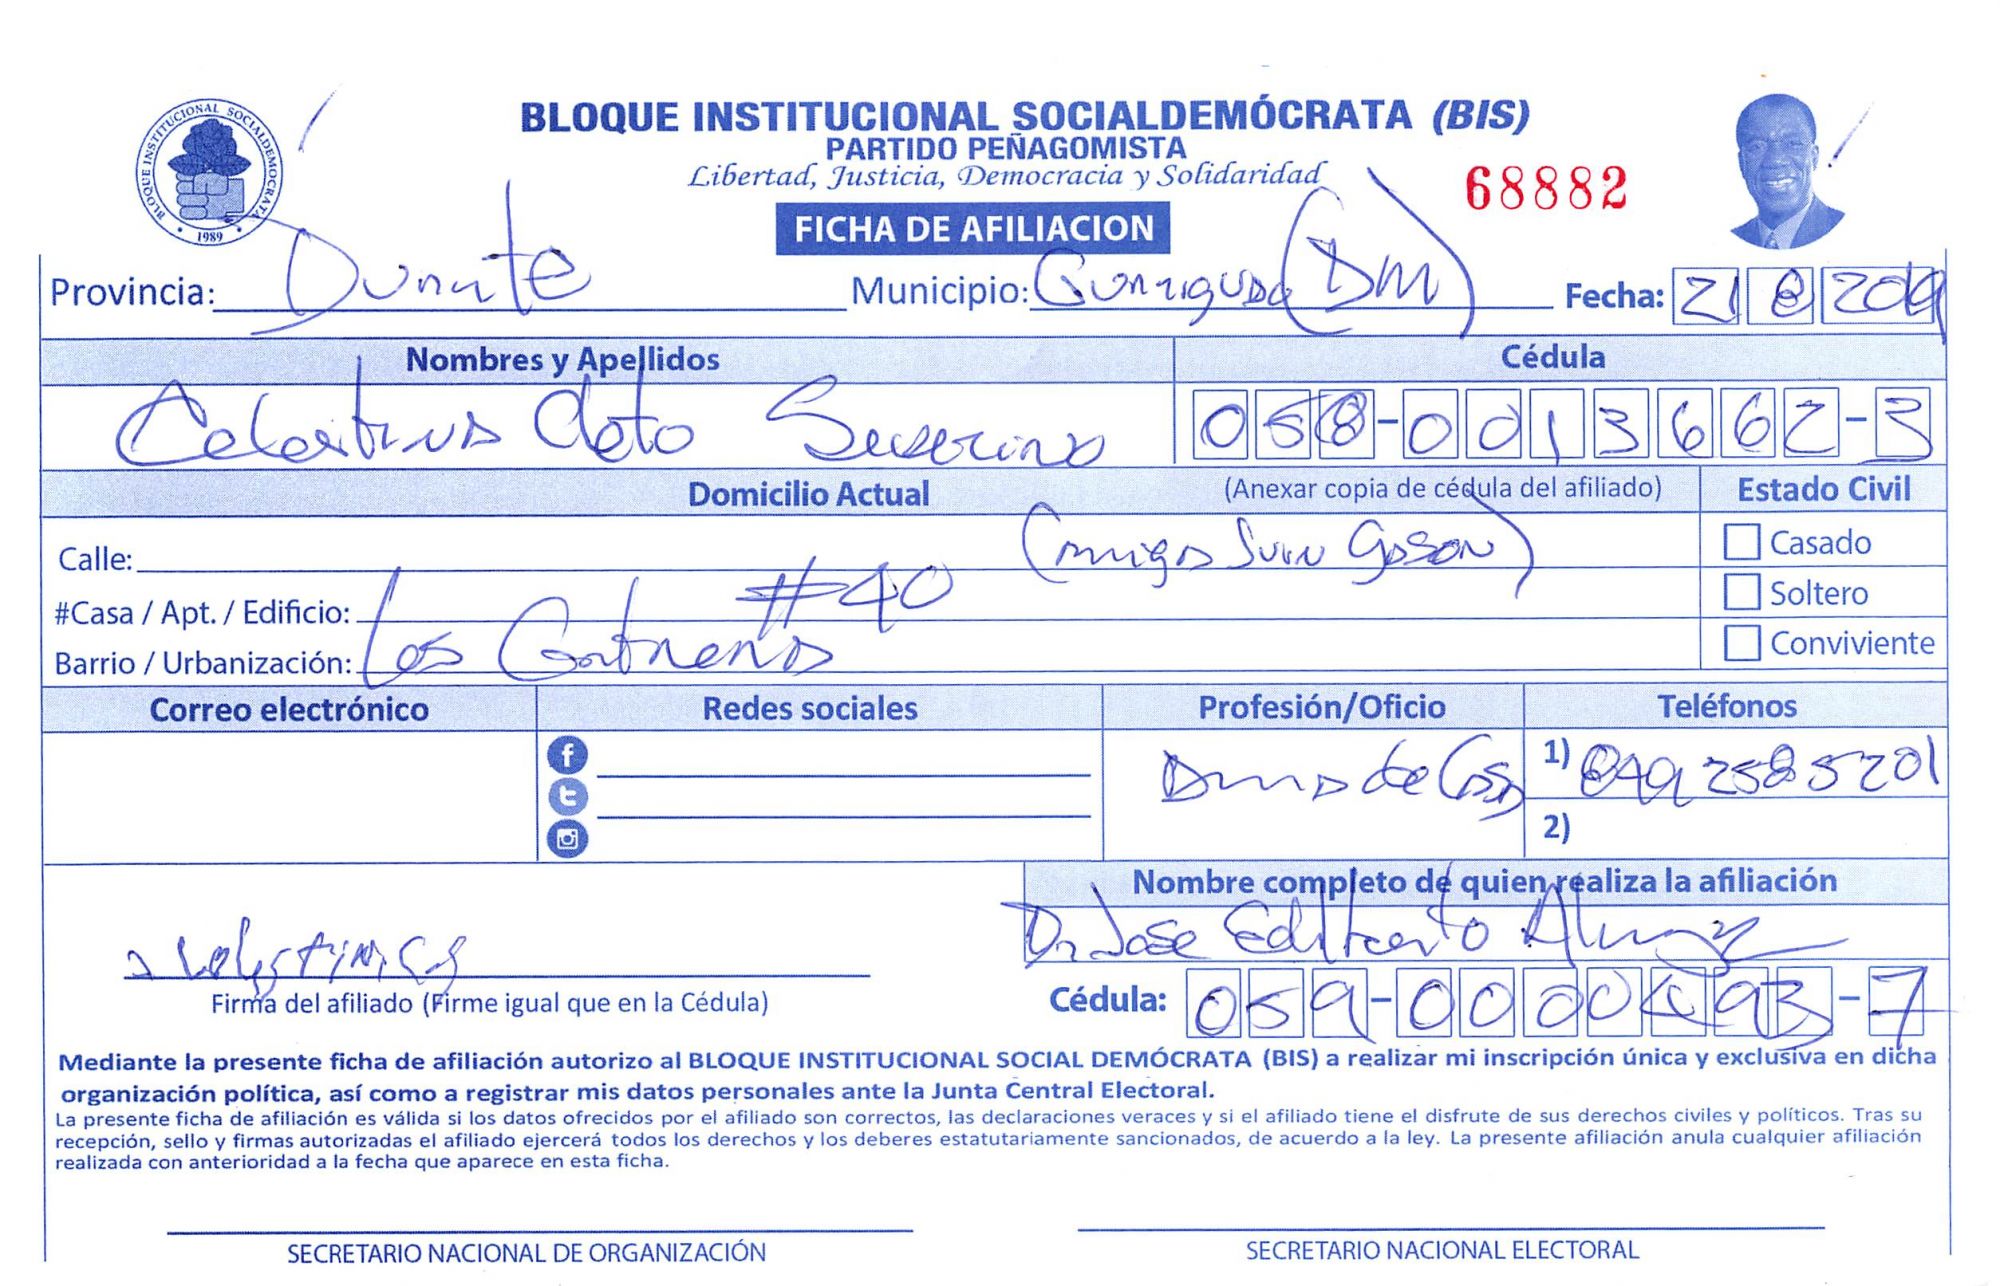 BLOQUE INSTITUCIONAL SOCIALDEMOCRATA
1989
BLOQUE INSTITUCIONAL SOCIALDEMÓCRATA (BIS)
PARTIDO PEÑAGOMISTA
Libertad, Justicia, Democracia y Solidaridad
68882
FICHA DE AFILIACION
Provincia: Duarte Municipio: (DM) Fecha: 21 8 2019
Nombres y Apellidos Cédula
Celestina Cleto Severino 058-0013662-3
Domicilio Actual (Anexar copia de cédula del afiliado) Estado Civil
Calle: (amiga Juan Gason) Casado
#Casa / Apt. / Edificio: #40 Soltero
Barrio / Urbanización: Los Contreras Conviviente
Correo electrónico Redes sociales Profesión/Oficio Teléfonos
Ama de Casa 1) 8492585201
2)
Nombre completo de quien realiza la afiliación
Dr. Jose Edilberto
Firma del afiliado (Firme igual que en la Cédula) Cédula: 059-0000 93-7
Mediante la presente ficha de afiliación autorizo al BLOQUE INSTITUCIONAL SOCIAL DEMÓCRATA (BIS) a realizar mi inscripción única y exclusiva en dicha
organización política, así como a registrar mis datos personales ante la Junta Central Electoral.
La presente ficha de afiliación es válida si los datos ofrecidos por el afiliado son correctos, las declaraciones veraces y si el afiliado tiene el disfrute de sus derechos civiles y políticos. Tras su
recepción, sello y firmas autorizadas el afiliado ejercerá todos los derechos y los deberes estatutariamente sancionados, de acuerdo a la ley. La presente afiliación anula cualquier afiliación
realizada con anterioridad a la fecha que aparece en esta ficha.
SECRETARIO NACIONAL DE ORGANIZACIÓN SECRETARIO NACIONAL ELECTORAL